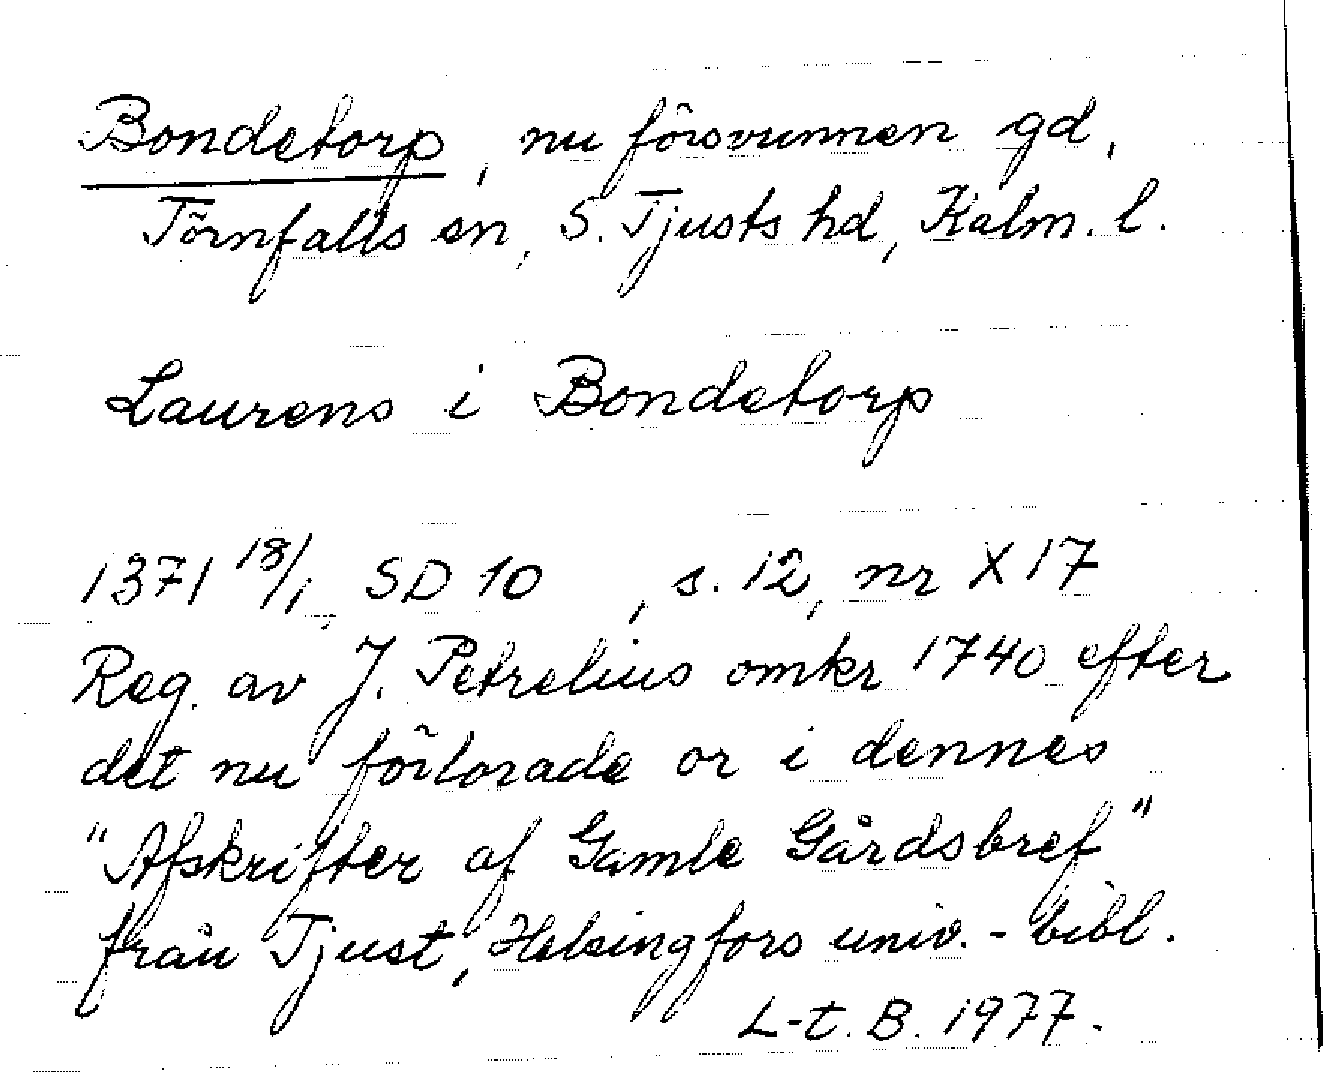 Bondetorp, nu försvunnen gd,
Törnfalls sn, S. Tjusts hd, Kalm. l.
Laurens i Bondetorp
1371 18/1, SD 10 , s. 12, nr X 17
Reg. av J. Petrelius omkr 1740 efter
det nu förlorade or i dennes
"Afskrifter af Gamle Gårdsbref"
från Tjust, Helsingfors univ.-bibl.
L-t. B. 1977.